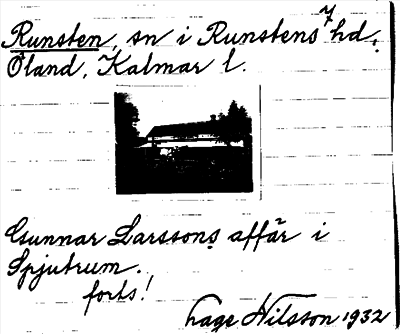 7
Runsten, sn i Runstens hd,
Öland, Kalmar l.
Gunnar Larssons affär i
Spjutrum.
forts!
Hage Nilsson 1932